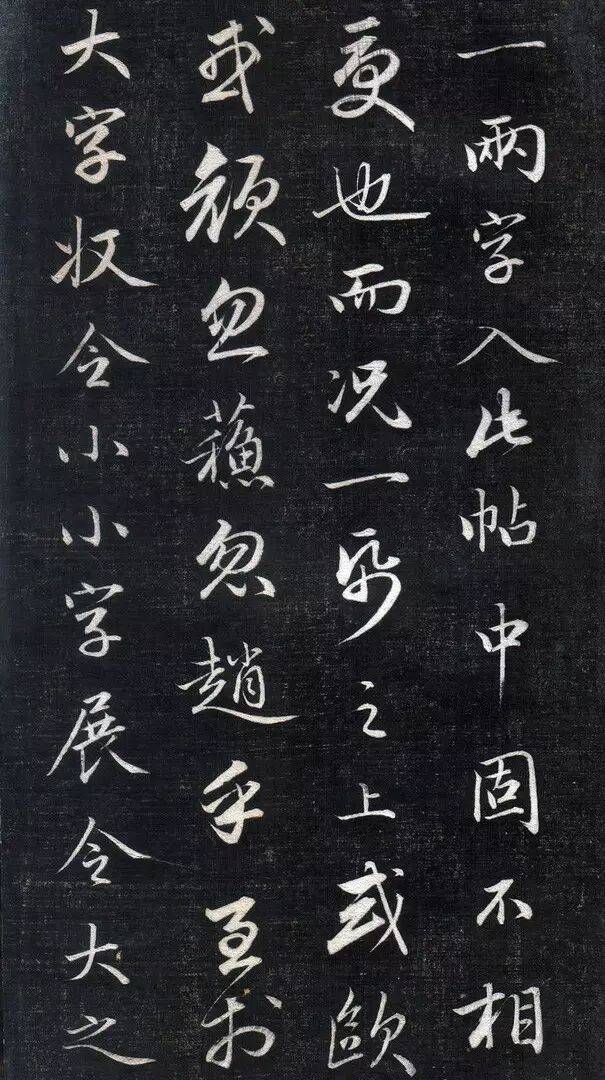 一兩字入此帖中固不相
也而況一帋之上或歐
或顏忽蘇忽趙乎至於
大字收令小小字展令大之